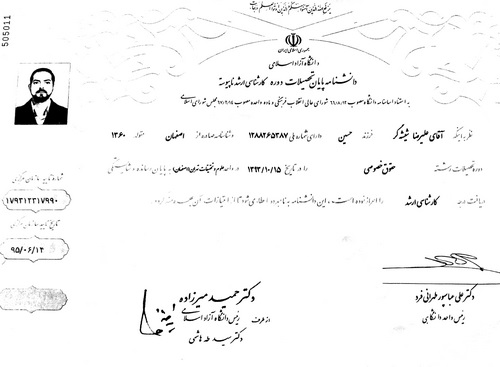 505011
جمهوری اسلامی ایران
دانشگاه آزاد اسلامی
دانشنامه پایان تحصیلات دوره کارشناسی ارشد ناپیوسته
به استناد اساسنامه دانشگاه مصوب شورای عالی انقلاب فرهنگی و ماده واحده مصوب مجلس شورای اسلامی
نظر به اینکه آقای علیرضا شیشه گر فرزند حسین دارای شماره ملی ۱۲۸۸۲۶۵۳۸۷ و شناسنامه صادره از اصفهان متولد ۱۳۶۰
دوره تحصیلات رشته حقوق خصوصی را در تاریخ ۱۳۹۳/۱۰/۱۵ در واحد علوم و تحقیقات به پایان رسانده و شایستگی
دریافت درجه کارشناسی ارشد را احراز نموده است، این دانشنامه به نامبرده اعطا می شود تا از امتیازات آن بهره مند گردد.
شماره تایید سازمان مرکزی
۱۷۹۳۱۲۳۱۷۹۹۰
تاریخ تایید سازمان مرکزی
۹۵/۰۶/۱۴
دکتر علی عباسپور طهرانی فرد
رئیس واحد دانشگاهی
دکتر حمید میرزاده
رئیس دانشگاه آزاد اسلامی
از طرف
دکتر سید طه هاشمی